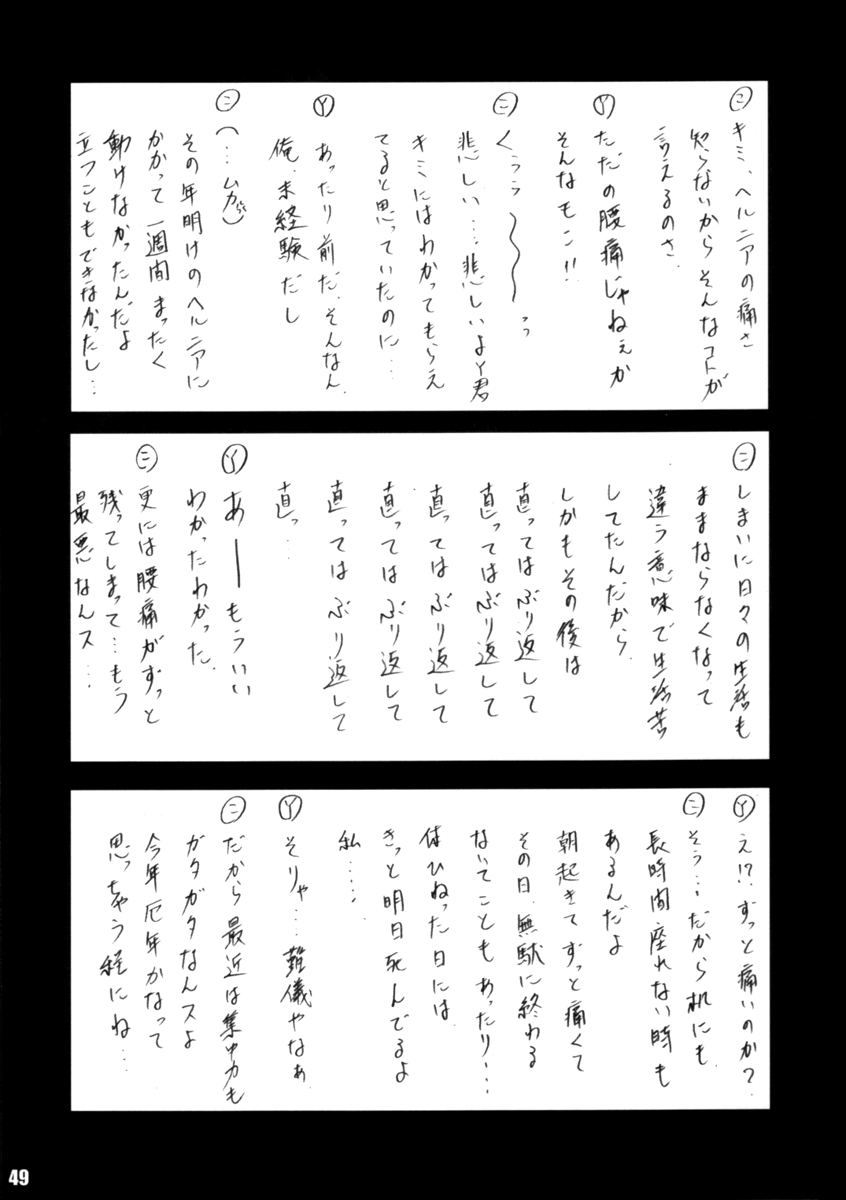 ㊁ キミ、ヘルニアの痛さ
知らないからそんなコトが
言えるのさ.
Ⓨ ただの腰痛じゃねぇか
そんなもこ!!
㊁ くぅぅ〜〜〜っ
悲しい…悲しいよY君
キミにはわかってもらえ
てると思っていたのに…
Ⓨ あったり前だ.そんなん.
俺.未経験だし
㊁ (…ムカッ)
その年明けのヘルニアに
かかって一週間まったく
動けなかったんだよ
立つこともできなかったし…
㊁ しまいに日々の生活も
ままならなくなって
違う意味で生活苦
してたんだから.
しかもその後は
直ってはぶり返して
直ってはぶり返して
直ってはぶり返して
直ってはぶり返して
直ってはぶり返して
直っ…
Ⓨ あーもういい
わかったわかった.
㊁ 更には腰痛がずっと
残ってしまって…もう
最悪なんス…
Ⓨ え!?ずっと痛いのか?
㊁ そう…だから机にも
長時間座れない時も
あるんだよ
朝起きてずっと痛くて
その日.無駄に終わる
ないてこともあったり…
体ひねった日には
きっと明日死んでるよ
私……
Ⓨ そりゃ…難儀やなぁ
㊁ だから最近は集中力も
ガタガタなんスよ
今年厄年かなって
思っちゃう経にね…
49